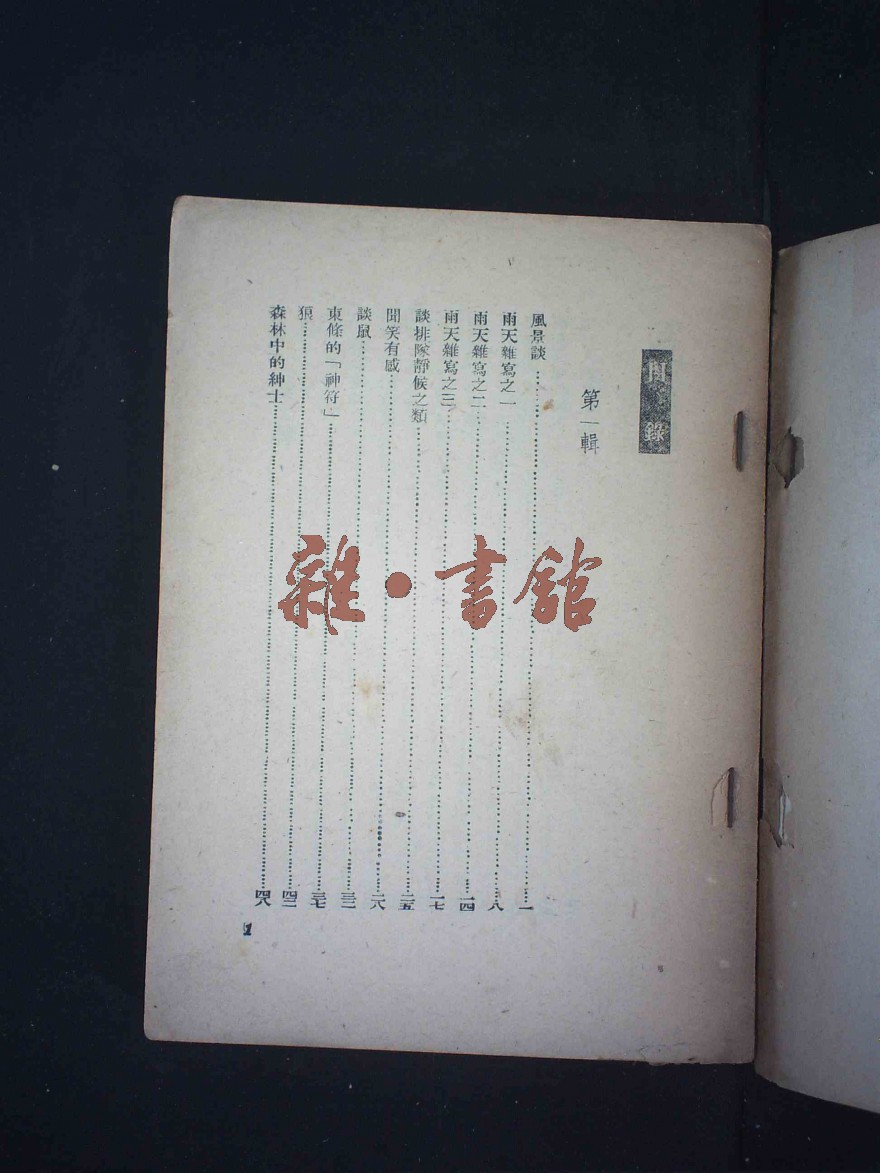 目錄
第一輯
風景談……一
雨天雜寫之一……八
雨天雜寫之二……一四
雨天雜寫之三……一七
談排隊靜候之類……二五
聞笑有感……二八
談鼠……三二
東條的「神符」……三七
狼……四二
森林中的紳士……四八
1
雜·書館